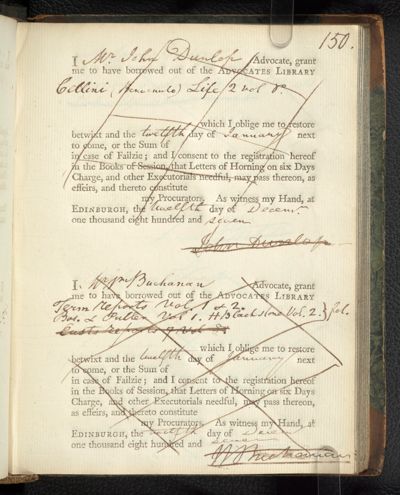 150.
I Mr. John Dunlop Advocate, grant
me to have borrowed out of the ADVOCATES LIBRARY
Cellini (Benvenuto) Life 2 vol 8o
which I oblige me to restore
betwixt and the twelfth day of January next
to come, or the Sum of
in case of Failzie; and I consent to the registration hereof
in the Books of Session, that Letters of Horning on six Days
Charge, and other Executorials needful, may pass thereon, as
effeirs, and thereto constitute
my Procurators. As witness my Hand, at
EDINBURGH, the twelfth day of Decemr.
one thousand eight hundred and seven
John Dunlop
I. Wm Buchanan Advocate, grant
me to have borrowed out of the ADVOCATES LIBRARY
Term Reports Vol. 1 & 2.
Bos. & Puller Vol 1. H Blackstone Vol. 2. } fol.
Easts reports 7 vol 8o
which I oblige me to restore
betwixt and the twelfth day of January next
to come, or the Sum of
in case of Failzie; and I consent to the registration hereof
in the Books of Session, that Letters of Horning on six Days
Charge, and other Executorials needful, may pass thereon,
as effeirs, and thereto constitute
my Procurators. As witness my Hand, at
EDINBURGH, the twelfth day of Decemr
one thousand eight hundred and seven
W Buchanan